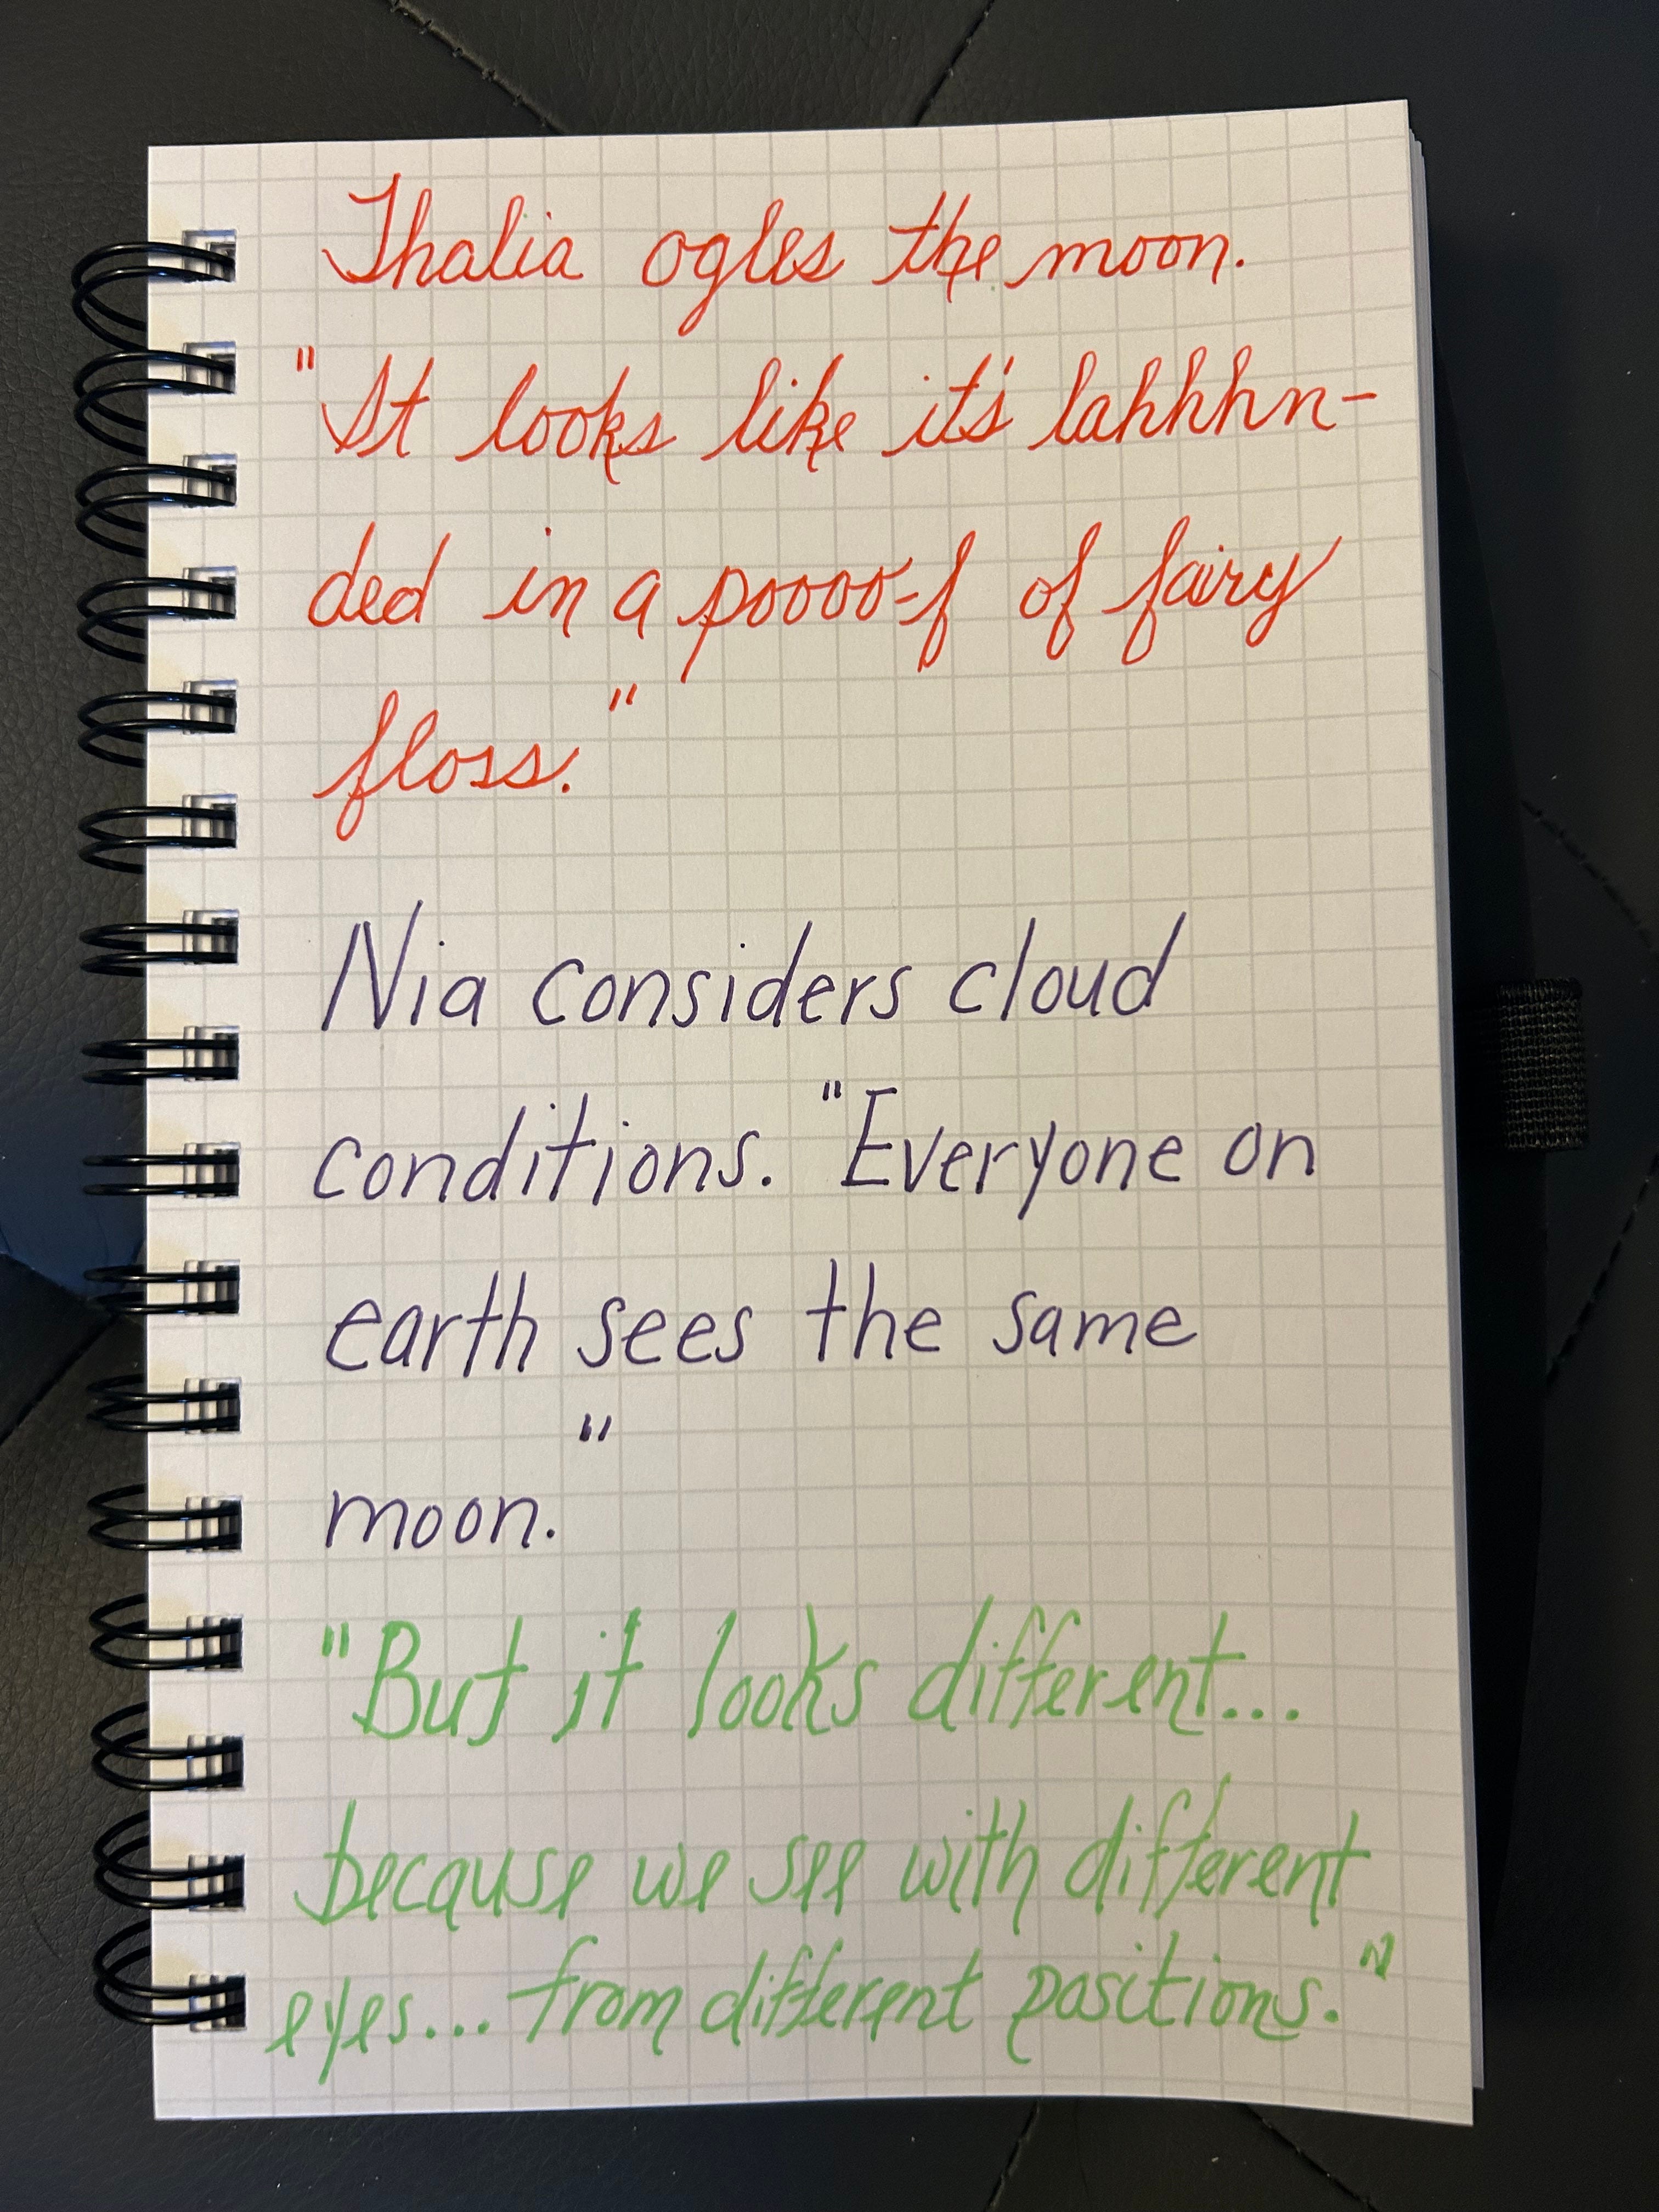 Thalia ogles the moon.
"It looks like it's lahhhn-
ded in a poooo-f of fairy
floss."
Nia considers cloud
conditions. "Everyone on
earth sees the same
moon."
"But it looks different...
because we see with different
eyes... from different positions."